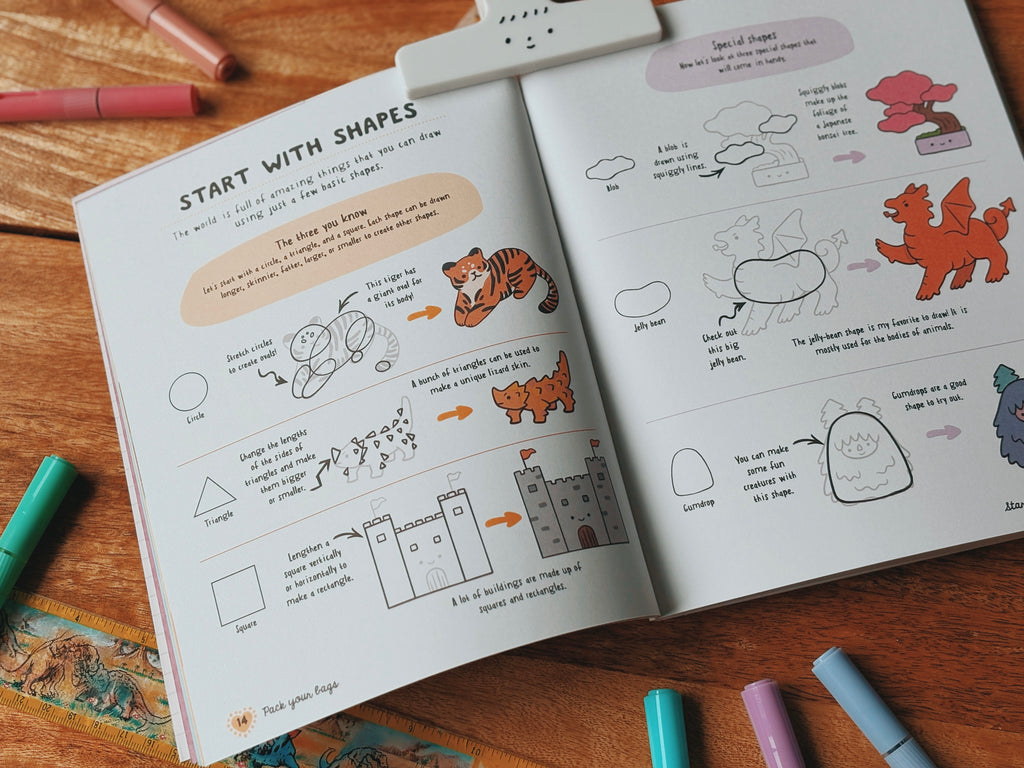 START WITH SHAPES
The world is full of amazing things that you can draw
using just a few basic shapes.
The three you know
Let's start with a circle, a triangle, and a square. Each shape can be drawn
longer, skinnier, fatter, larger, or smaller to create other shapes.
This tiger has
a giant oval for
its body!
Stretch circles
to create ovals!
Circle
A bunch of triangles can be used to
make a unique lizard skin.
Change the lengths
of the sides of
triangles and make
them bigger
or smaller.
Triangle
Lengthen a
square vertically
or horizontally to
make a rectangle.
Square
A lot of buildings are made up of
squares and rectangles.
14
Pack your bags
Special shapes
Now let's look at three special shapes that
will come in handy.
Squiggly blobs
make up the
foliage of
a Japanese
bonsai tree.
A blob is
drawn using
squiggly lines.
Blob
Jelly bean
Check out
this big
jelly bean.
The jelly-bean shape is my favorite to draw! It is
mostly used for the bodies of animals.
Gumdrops are a good
shape to try out.
You can make
some fun
creatures with
this shape.
Gumdrop